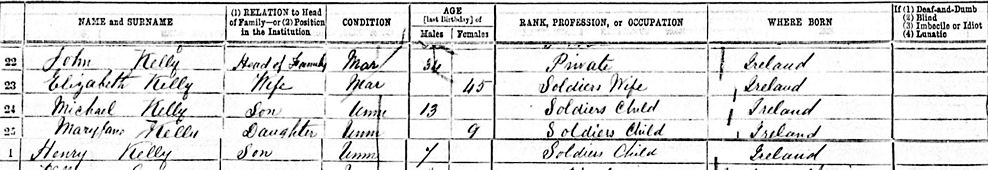 NAME and SURNAME (1) RELATION to Head of Family—or (2) Position in the Institution CONDITION AGE [last Birthday] of Males Females RANK, PROFESSION, or OCCUPATION WHERE BORN If (1) Deaf-and-Dumb (2) Blind (3) Imbecile or Idiot (4) Lunatic
22 John Kelly Head of Family Mar Private Ireland
23 Elizabeth Kelly Wife Mar 45 Soldiers Wife Ireland
24 Michael Kelly Son Unm 13 Soldiers Child Ireland
25 Mary Jane Kelly Daughter Unm 9 Soldiers Child Ireland
1 Henry Kelly Son Unm 7 Soldiers Child Ireland